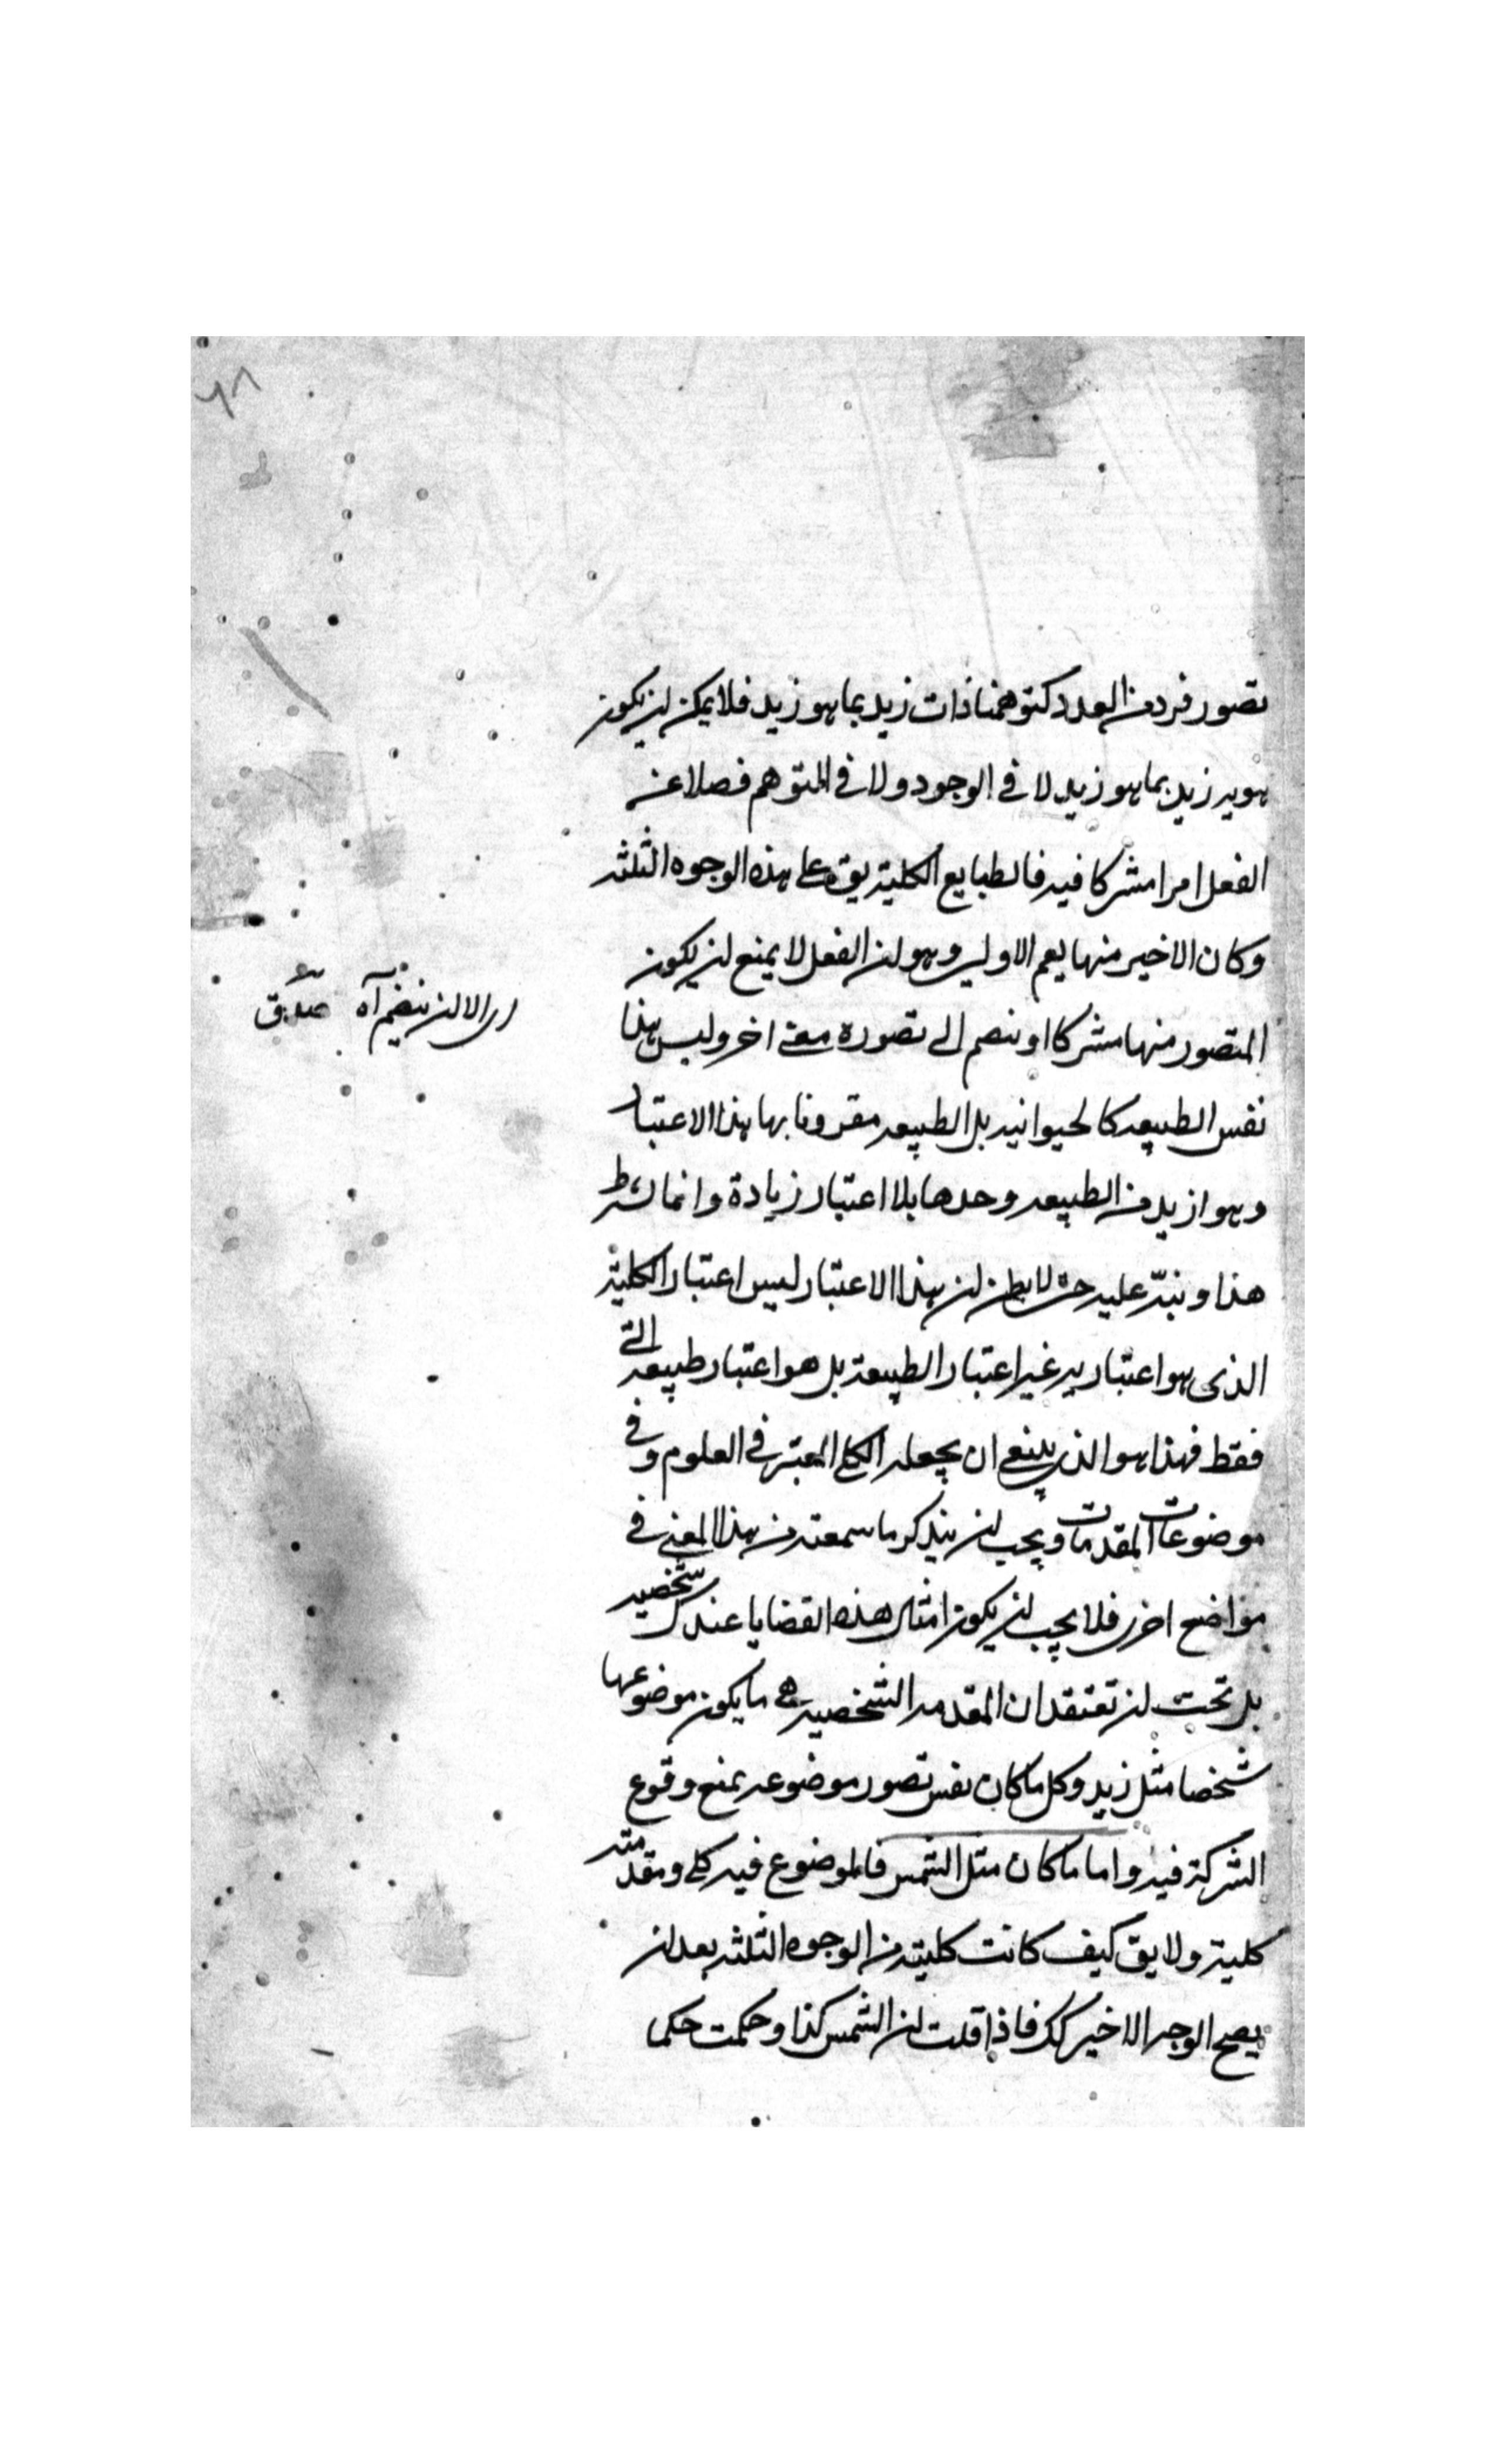 ٦٨
تصور فرد من العدد كتوهمنا ذات زيد بما هو زيد فلا يمكن ان يكون
هويه زيد بما هو زيد لا في الوجود ولا في التوهم فصلا عن
الفعل امرا مشركا فيه فالطبايع الكلية يق على هذه الوجوه الثلثه
وكان الاخير منها يعم الاولين وهو ان الفعل لا يمنع ان يكون
المتصور منها مشركا او ينضم الى تصوره معنى اخر وليس هذا
اى الا ان ينضم آه
نفس الطبيعه كالحيوانيه بل الطبيعه مقرونا بها هذا الاعتبار
وهو ازيد من الطبيعه وحدها بلا اعتبار زيادة وانما نشرط
هذا وننبه عليه حتى لا يظن ان هذا الاعتبار ليس اعتبار الكلية
الذى هو اعتبار غير اعتبار الطبيعة بل هو اعتبار طبيعه التى
فقط فهذا هو الذى ينبغى ان يجعل الكلى المعتبر في العلوم وفى
موضوعات المقدمات ويجب ان يتذكر ما سمعته من هذا المعنى فى
مواضع اخرى فلا يجب ان يكون امثال هذه القضايا عندك شخصيه
بل تحت ان تعتقد ان المقدمه الشخصيه هى ما يكون موضوعها
شخصا مثل زيد وكل ما كان نفس تصور موضوعه يمنع وقوع
الشركة فيه واما ما كان مثل الشمس فالموضوع فيه كلى ومقدمته
كلية ولا يق كيف كانت كلية من الوجوه الثلثه بعد ان
يصح الوجه الاخير كك فاذا قلت ان الشمس كذا وحكمت حكما